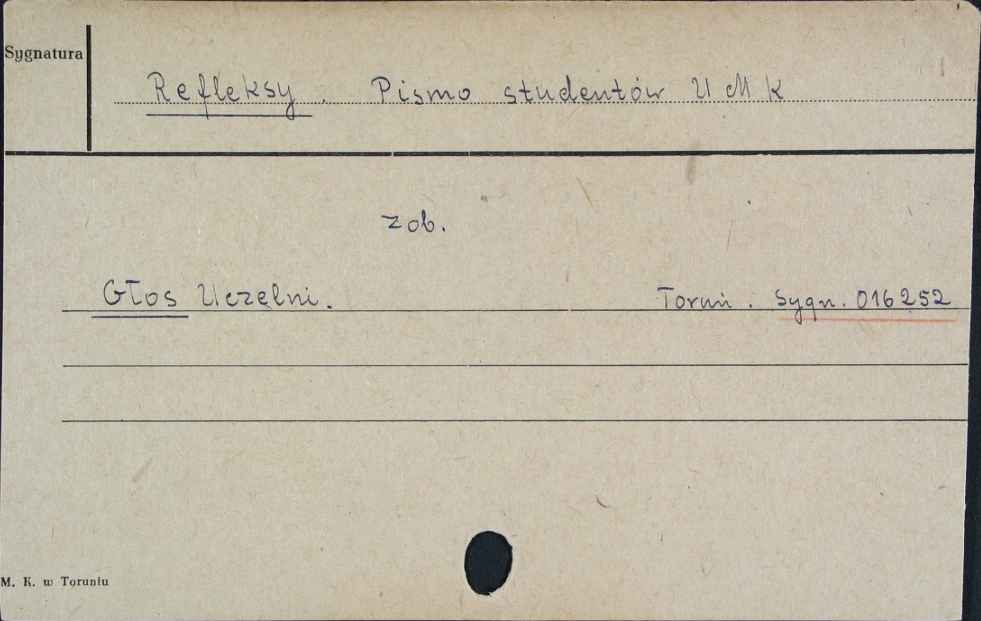 Sygnatura
Refleksy. Pismo studentów UMK
zob.
Głos Uczelni. Toruń. Sygn. 016252
M. K. w Toruniu